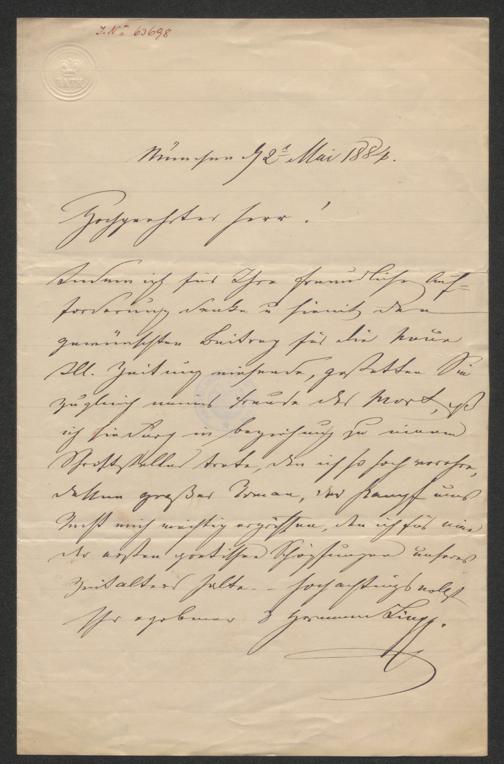 I. N. 63698
BATH
München d 2t Mai 1884.
Hochgeehrter Herr!
Indem ich für Ihre freundliche Auf-
forderung danke u hiemit den
gewünschten Beitrag für die Neue
Ill. Zeitung einsende, gestatten Sie
zugleich meine Freude des Wort, daß
ich hiedurch in beziehung zu einem
Schriftsteller trete, den ich so hoch verehre,
dessen großer Roman, der Kampf ums
Recht mich mächtig ergriffen, den ich für eine
der ersten poetischen Schöpfungen unseres
Zeitalters halte. – Hochachtungsvollst
Ihr ergebener Hermann Lingg.